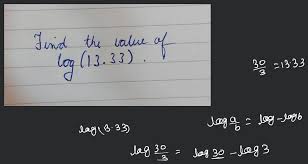 Find the value of
log (13.33).
30/3 = 13.33
log(13.33)
log a/b = log - log b
log 30/3 = log 30 - log 3